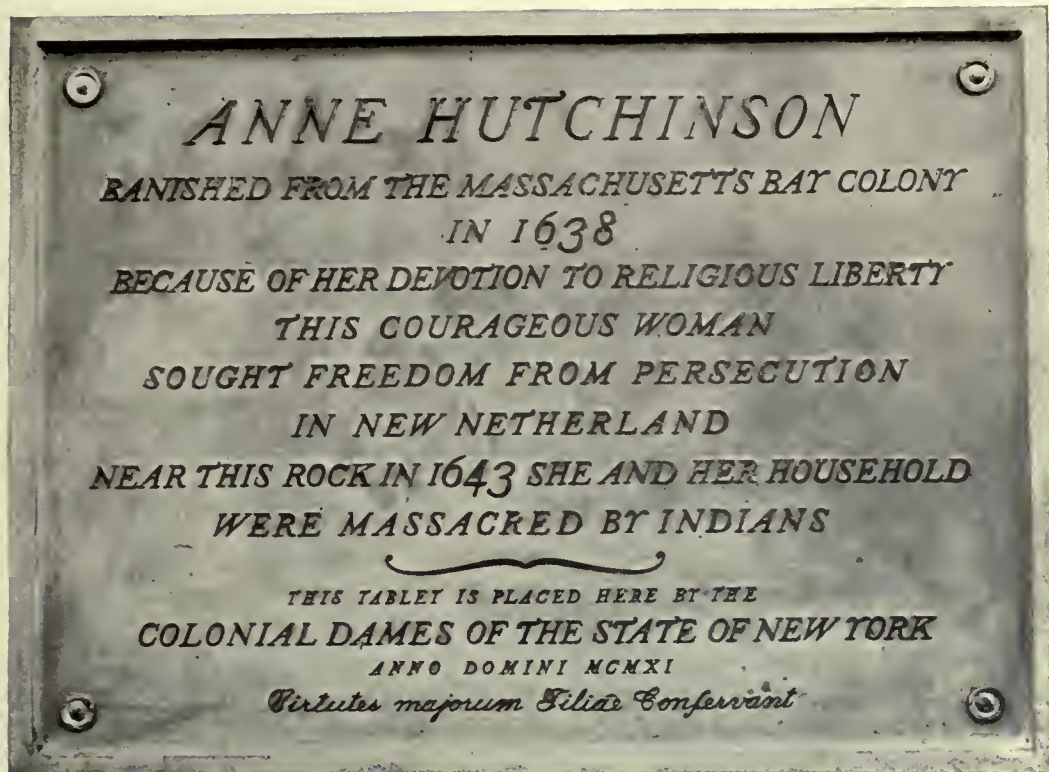 ANNE HUTCHINSON
BANISHED FROM THE MASSACHUSETTS BAY COLONY
IN 1638
BECAUSE OF HER DEVOTION TO RELIGIOUS LIBERTY
THIS COURAGEOUS WOMAN
SOUGHT FREEDOM FROM PERSECUTION
IN NEW NETHERLAND
NEAR THIS ROCK IN 1643 SHE AND HER HOUSEHOLD
WERE MASSACRED BY INDIANS
THIS TABLET IS PLACED HERE BY THE
COLONIAL DAMES OF THE STATE OF NEW YORK
ANNO DOMINI MCMXI
Virtutes majorum Filiae Conſervant